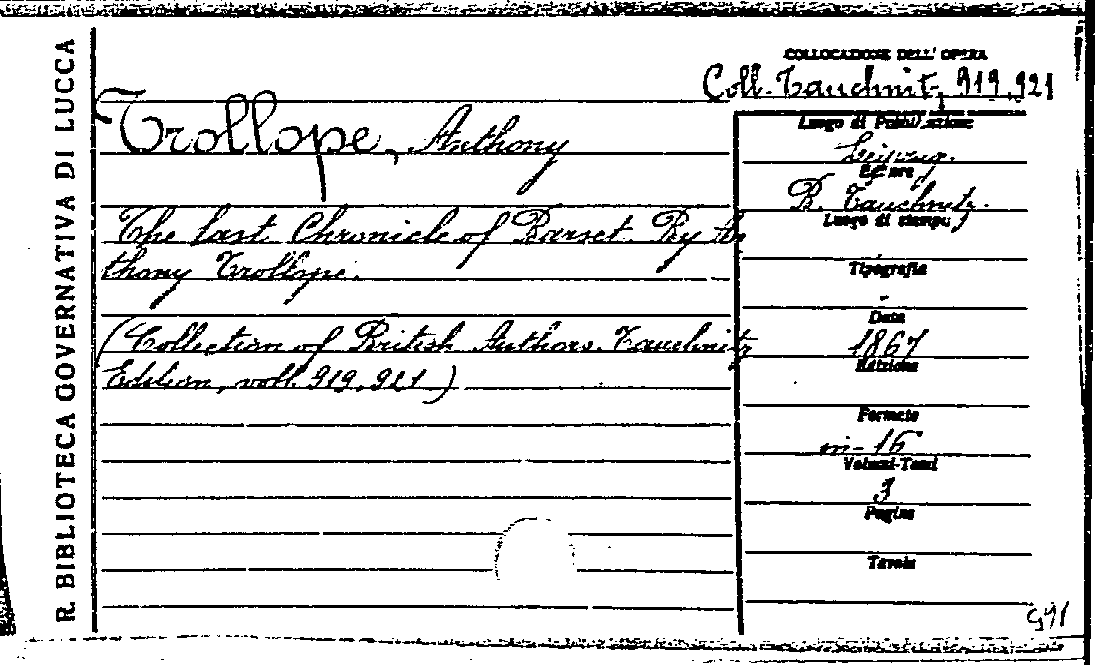 R. BIBLIOTECA GOVERNATIVA DI LUCCA
Trollope, Anthony
The last Chronicle of Barset. By An
thony Trollope.
(Collection of British Authors. Tauchnitz
Edition, voll. 919, 921.)
COLLOCAZIONE DELL' OPERA
Coll. Tauchnitz, 919, 921
Luogo di Pubblicazione
Leipzig.
Editore
B. Tauchnitz.
Luogo di stampa
Tipografia
-
Data
1867
Edizione
Formato
in-16
Volumi-Tomi
3
Pagine
Tavole